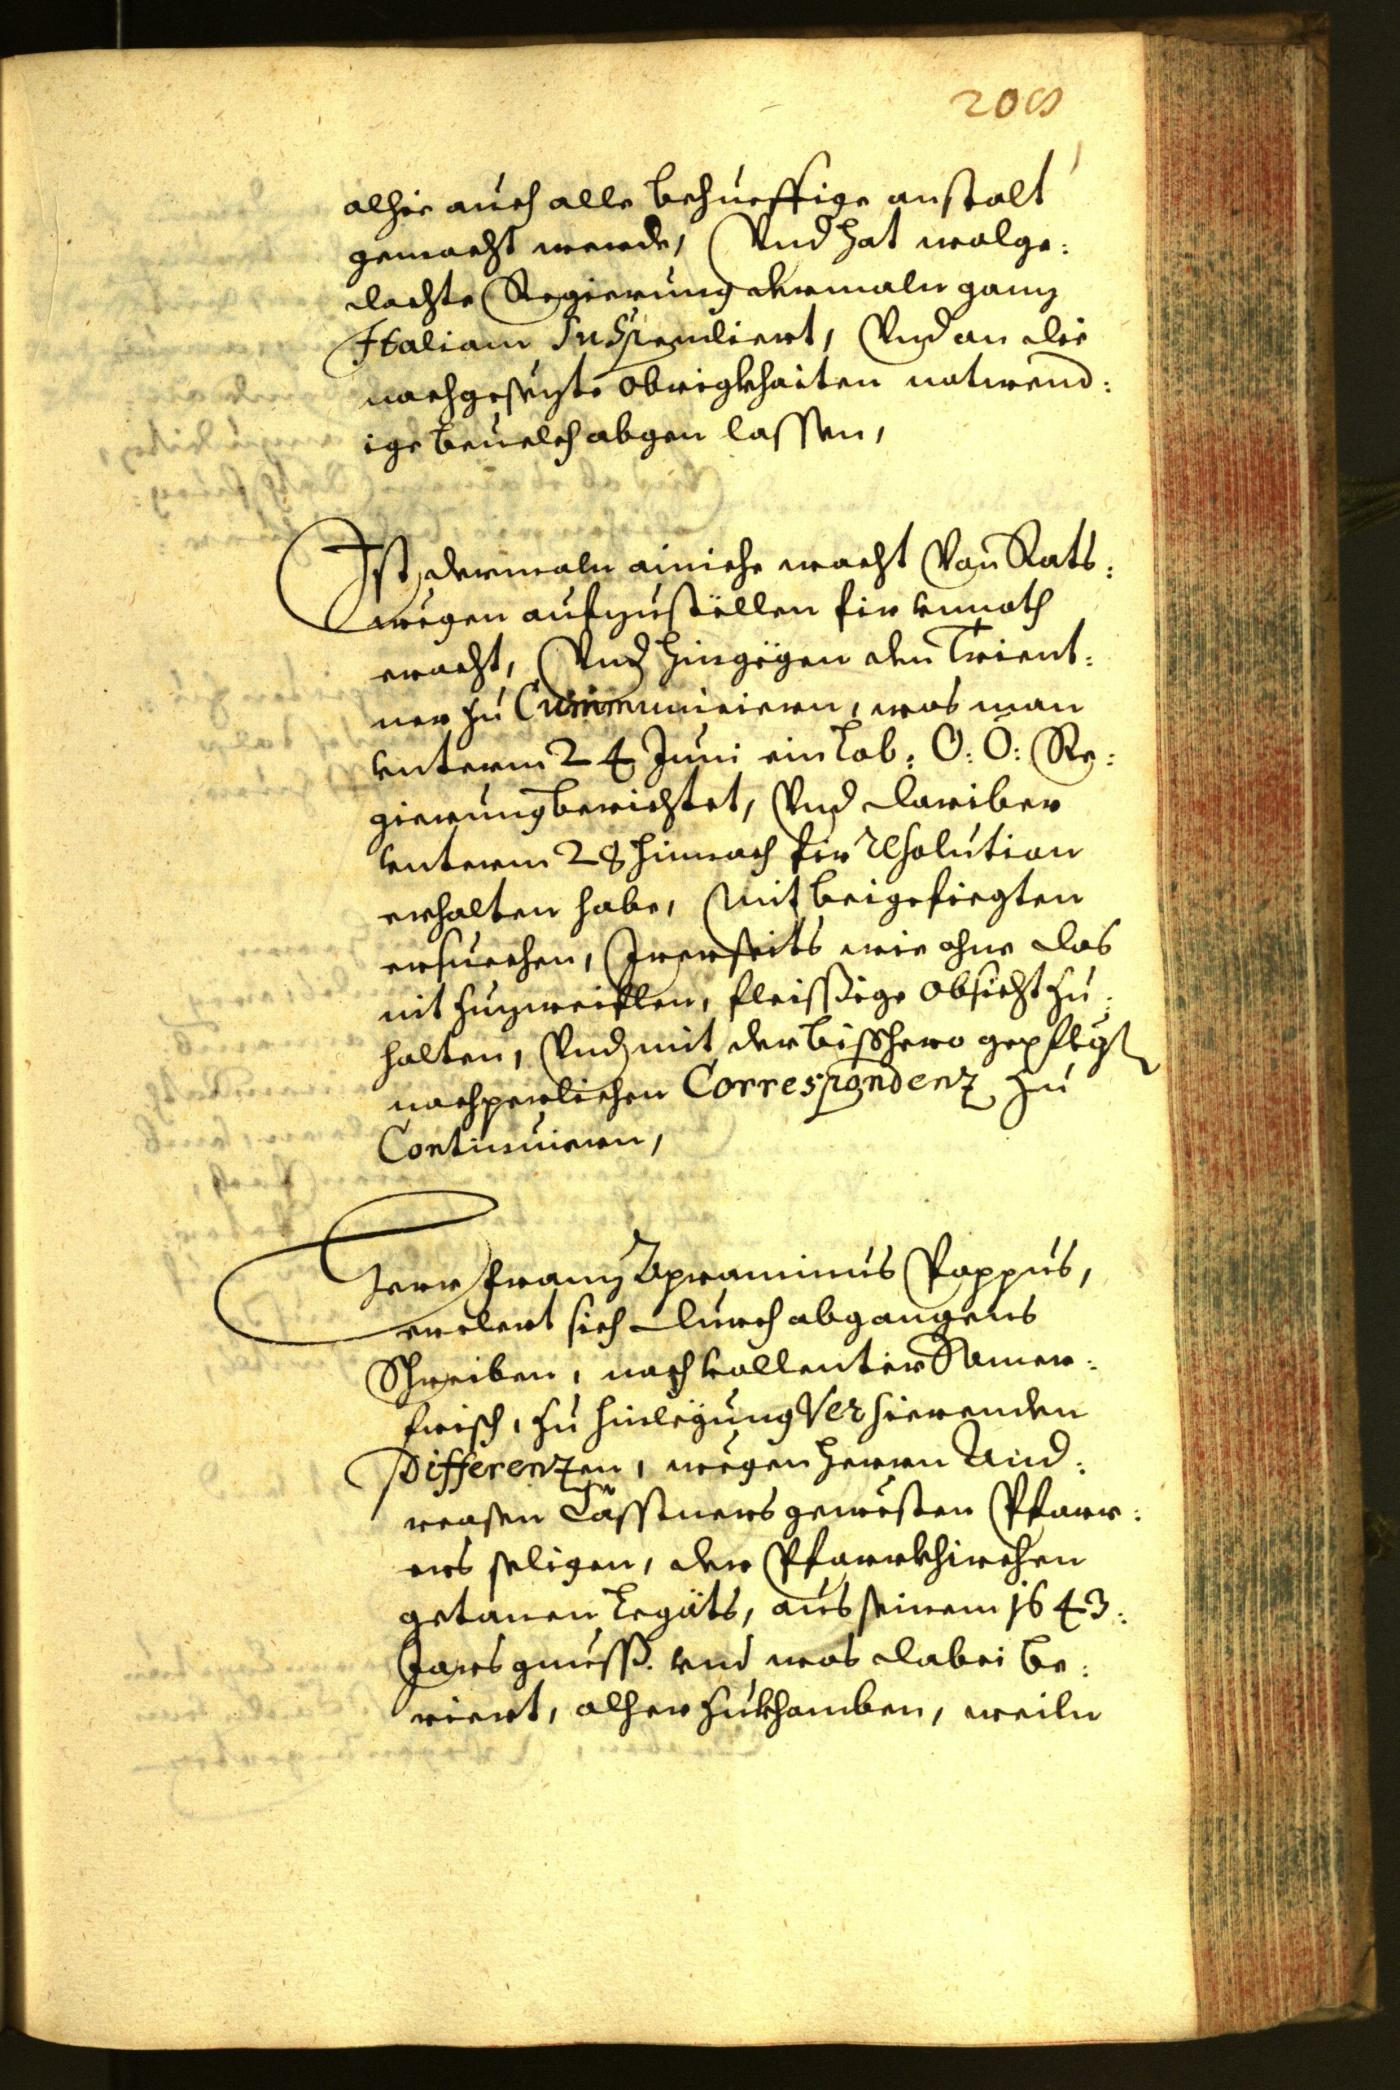 208
alhie auch alle behueffige anstalt
gemacht werde, Vnd hat wolge:
dachte Regierung dermaln ganz
Italiam Suspendiert, Vnd an die
nachgesezte Obrigkhaiten notwend:
ige beuelch abgen lassen,
Ist dermaln ainiche wacht Von Rats:
wegen aufzustellen fir vnnoth
eracht, Vnd hingegen den Trient:
ner zu Cummunicieren, was man
vnterm 24 Juni ein Lob: O: Ö: Re:
gierung berichtet, Vnd dariber
vnterm 28 hinnach fir resolution
erhalten habe, mit beigefiegten
ersuechen, Irerseits wie ohne das
nit zuzweiflen, fleissige Obsicht zu:
halten, Vnd mit der bisshero gepflegt
nachperlichen Correspondenz zu
Continuiern,
Herr Franz Pappus,
erclert sich durch abgangens
Schreiben, nach vollenter Samer:
frisch, zu hinlegung Versierenden
Differenzen, wegen Herrn And:
reasen Tässtners gewesten Pfarr:
ers seligen, der Pfarrkhirchen
getanen Legats, aus seinem 1643:
Jars gnuss. vnd was dabei be:
riert, alher zukhomben, weiln